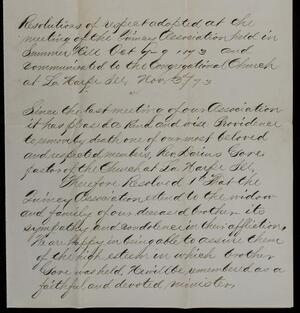 Resolutions of respect adopted at the
meeting of the Quincy Association held in
Summer Hill Oct 7-9 1873 and
communicated to the Congregational Church
at La Harpe Ill, Nov. 3/73
Since the last meeting of our Association
it has pleased a kind and wise Providence
to remove by death one of our most beloved
and respected members, Rev. Darius Gore
pastor of the Church at La Harpe Ill.
Therefore Resolved 1st That the
Quincy Association extend to the widow
and family of our deceased brother its
sympathy and condolence in their affliction,
We are happy in being able to assure them
of the high esteem in which brother
Gore was held. He will be remembered as a
faithful and devoted minister,